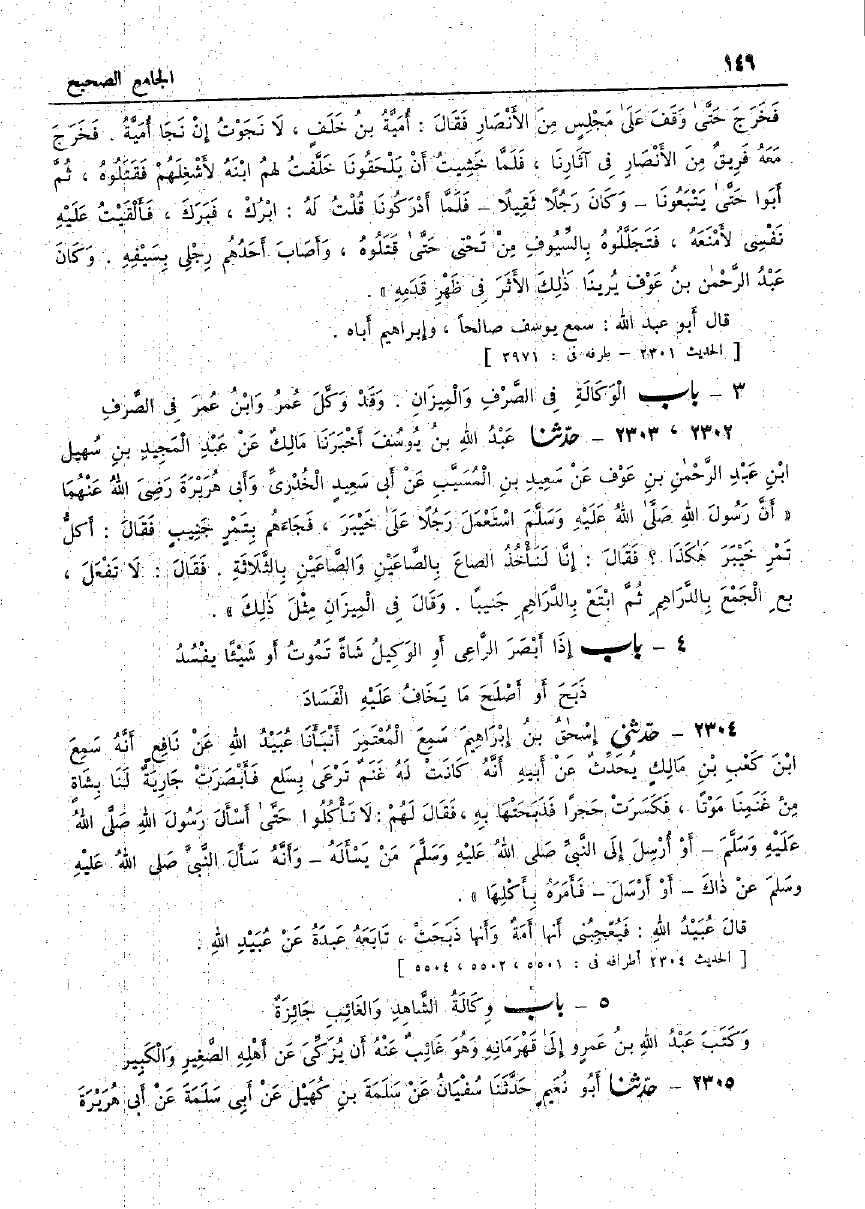 ١٤٩
الجامع الصحيح
فَخَرَجَ حَتَّىٰ وَقَفَ عَلَىٰ مَجْلِسٍ مِنَ الأَنْصَارِ فَقَالَ : أُمَيَّةُ بنُ خَلَفٍ ، لَا نَجَوْتُ إِنْ نَجَا أُمَيَّةُ . فَخَرَجَ
مَعَهُ فَرِيقٌ مِنَ الأَنْصَارِ فى آثَارِنَا ، فَلَمَّا خَشِيتُ أَنْ يَلْحَقُونَا خَلَّفتُ لهمُ ابْنَهُ لأَشْغِلَهُمْ فَقَتَلُوهُ ، ثُمَّ
أَبَوا حَتَّىٰ يَتْبَعُونَا – وَكَانَ رَجُلًا ثَقِيلًا – فَلَمَّا أَدْرَكُونَا قُلْتُ لَهُ : ابْرُكْ ، فَبَرَكَ ، فَأَلْقَيْتُ عَلَيْهِ
نَفْسِى لأَمْنَعَهُ ، فَتَجَلَّلُوهُ بِالسُّيُوفِ مِنْ تَحْتى حَتَّىٰ قَتَلُوهُ ، وَأَصَابَ أَحَدُهُم رِجْلِى بِسَيْفِهِ . وَكَانَ
عَبْدُ الرَّحْمٰنِ بنُ عَوْف يُرِينَا ذٰلِكَ الأَثَرَ فى ظَهْرِ قَدَمِهِ » .
قال أبو عبد الله : سمع يوسف صالحاً ، وإبراهيم أباه .
[ الحديث ٢٣٠١ – طرفه فى : ٣٩٧١ ]
٣ – باب الْوَكَالَةِ فى الصَّرْفِ وَالْمِيزَانِ . وَقَدْ وَكَّلَ عُمَرُ وَابْنُ عُمَرَ فى الصَّرْفِ
٢٣٠٢ ، ٢٣٠٣ – حدّثنا عَبْدُ اللهِ بنُ يُوسُفَ أَخْبَرَنَا مَالِكٌ عَنْ عَبْدِ الْمَجِيدِ بنِ سُهيل
ابْنِ عَبْدِ الرَّحْمٰنِ بنِ عَوْف عَنْ سَعِيدِ بنِ الْمُسَيَّبِ عَنْ أَبى سَعِيدٍ الْخُدْرِىِّ وَأَبى هُرَيْرَةَ رَضِىَ اللهُ عَنْهُمَا
« أَنَّ رَسُولَ اللهِ صَلَّى اللهُ عَلَيْهِ وَسَلَّمَ اسْتَعْمَلَ رَجُلًا عَلَىٰ خَيْبَرَ ، فَجَاءَهُم بِتَمْرٍ جَنِيبٍ فَقَالَ : أَكلُّ
تَمْرِ خَيْبَرَ هٰكَذَا ؟ فَقَالَ : إِنَّا لَنَأْخُذُ الصاعَ بِالصَّاعَيْنِ وَالصَّاعَيْنِ بِالثَّلَاثَةِ . فَقَالَ : لَا تَفْعَلْ ،
بعِ الْجَمْعَ بِالدَّرَاهِمِ ثُمَّ ابْتَعْ بِالدَّرَاهِمِ جَنِيبًا . وَقَالَ فى الْمِيزَانِ مِثْلَ ذٰلِكَ » .
٤ – باب إِذَا أَبْصَرَ الرَّاعِى أَوِ الْوَكِيلُ شَاةً تَمُوتُ أَو شَيْئًا يفْسُدُ
ذَبَحَ أَو أَصْلَحَ مَا يَخَافُ عَلَيْهِ الْفَسَادَ
٢٣٠٤ – حدّثنى إِسْحٰقُ بنُ إِبْرَاهِيمَ سَمِعَ الْمُعْتَمِرَ أَنْبَأَنَا عُبَيْدُ اللهِ عَنْ نَافِعٍ أَنَّهُ سَمِعَ
ابْنَ كَعْبِ بْنِ مَالِكٍ يُحَدِّثُ عَنْ أَبِيهِ أَنَّهُ كَانَتْ لَهُ غَنَمٌ تَرْعَى بِسَلع فَأَبْصَرَتْ جَارِيَةٌ لَنَا بِشَاةٍ
مِنْ غَنَمِنَا مَوْتًا ، فَكَسَرَتْ حَجَرًا فَذَبَحَتْهَا بِهِ ، فَقَالَ لَهُمْ : لَا تَأْكُلُوا حَتَّىٰ أَسْأَلَ رَسُولَ اللهِ صَلَّى اللهُ
عَلَيْهِ وَسَلَّمَ – أَوْ أُرْسِلَ إِلَى النَّبىِّ صَلى اللهُ عَلَيْهِ وَسَلَّمَ مَنْ يَسْأَلهُ – وَأَنَّهُ سَأَلَ النَّبىَّ صَلى اللهُ عَلَيْهِ
وسَلمَ عَنْ ذَاكَ – أَوْ أَرْسَلَ – فَأَمَرَهُ بِأَكْلِهَا » .
قَالَ عُبَيْدُ اللهِ : فَيُعْجِبُنى أَنها أَمَةٌ وَأَنها ذَبَحَتْ ، تَابَعَهُ عَبدَةُ عَنْ عُبَيْدِ اللهِ .
[ الحديث ٢٣٠٤ أطرافه فى : ٥٥٠١ ، ٥٥٠٢ ، ٥٥٠٤ ]
٥ – باب وِكَالَةُ الشَّاهِدِ وَالغَائِبِ جَائِزَةٌ
وَكَتَبَ عَبْدُ اللهِ بنُ عَمرٍو إِلَىٰ قَهْرَمَانِهِ وَهُوَ غَائِبٌ عَنْهُ أَن يُزَكِّىَ عَن أَهْلِهِ الصَّغِيرِ وَالْكَبِيرِ
٢٣٠٥ – حدّثنا أَبُو نُعَيمٍ حَدَّثَنَا سُفْيَانُ عَنْ سَلَمَةَ بنِ كُهَيْلٍ عَنْ أَبِى سَلَمَةَ عَنْ أَبى هُرَيْرَةَ